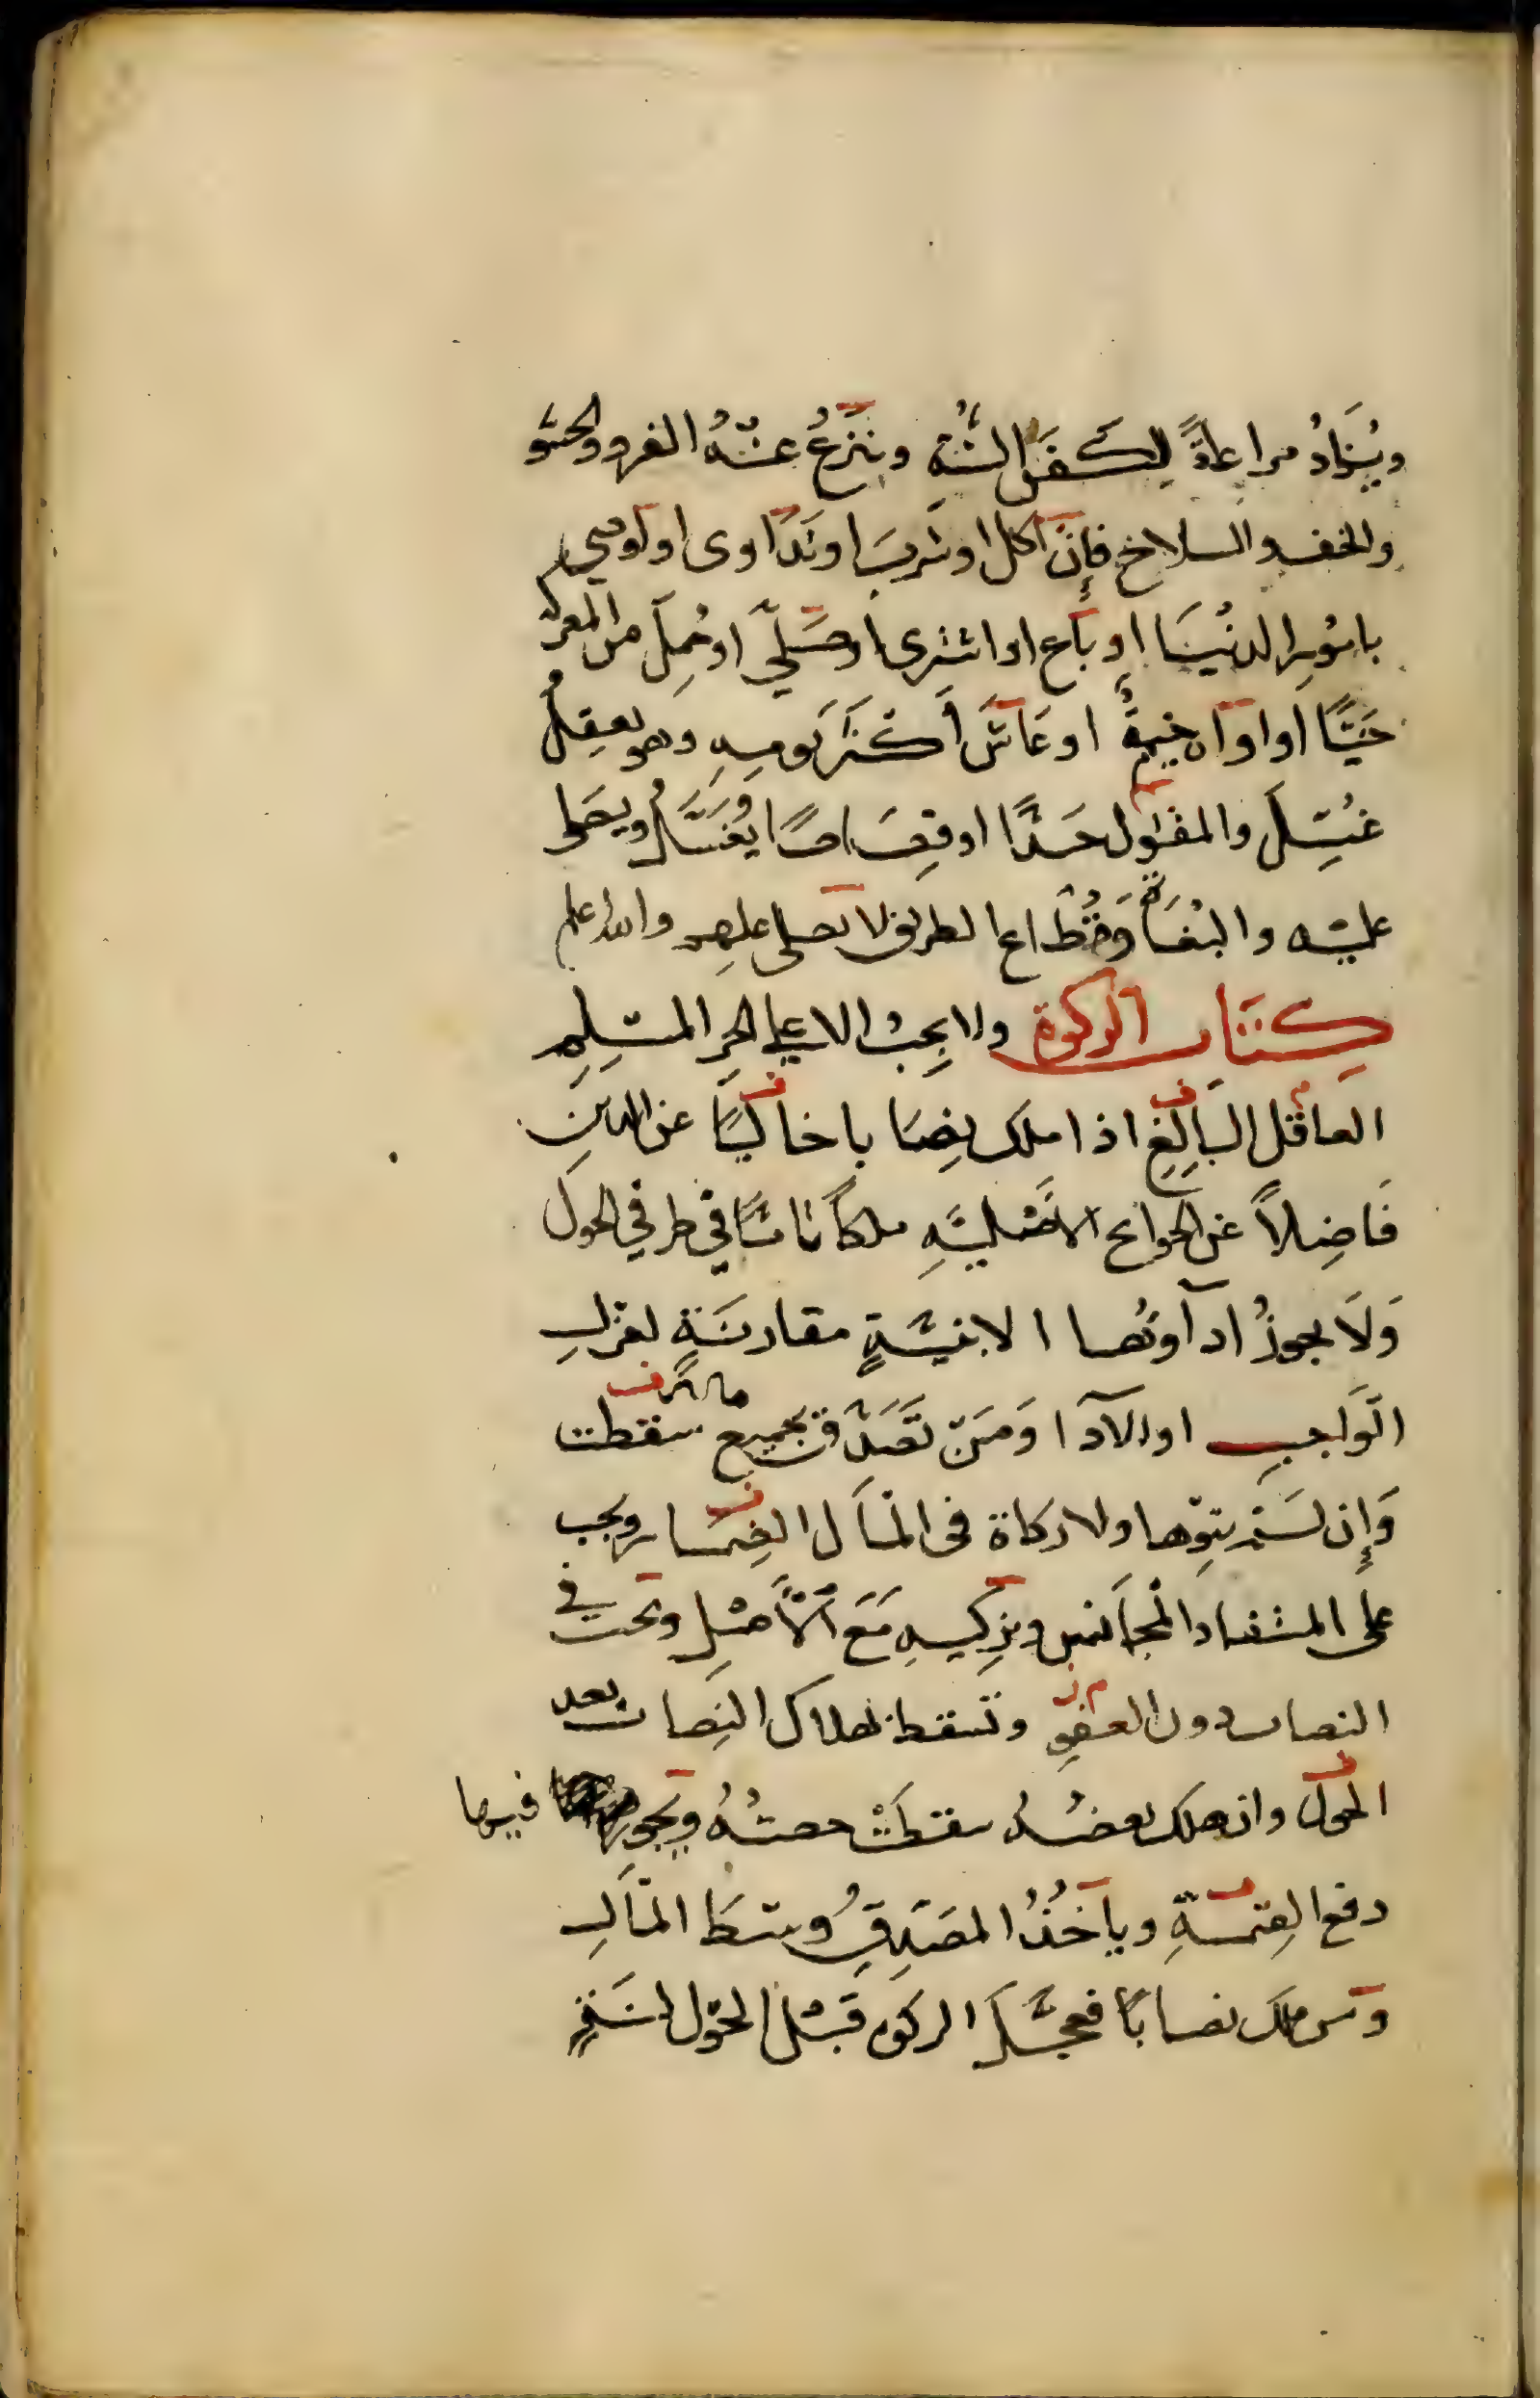 ويُزادُ مراعاةً لِكَفَنِ السُّنّةِ وينزَعُ عنْهُ الفرو والحشو
والخف والسلاح فإن اكل او شربَ او تَدَاوى او اوصى
بامُورِ الدنْيَا او باع او اشترى او صَلّى او حُمِلَ من المعركة
حَيًّا او اوآه خيمةٌ او عَاشَ أكثرَ يَومِهِ وهو يعقِلُ
غُسِّلَ والمقتول حدًّا او قِصَاصًا يُغَسَّلُ ويصلى
عليْه والبُغَاةُ وقُطَّاع الطريق لا يصلى عليهِم والله اعلم
كتاب الزكوة ولا يجِبُ الا على الحرِ المسْلِمِ
العاقل البَالِغِ اذا ملك نِصَابا خاليًا عن الدين
فَاضِلاً عن الحوائج الأصْليَّهِ ملكًا تامًّا في طرفي الحول
وَلَا يجوزُ ادآؤها الا بنيَّةٍ مقارنَةٍ لعزلِ
الوَاجبِ او الآدا وَمَنْ تَصَدَّق بجميع ماله سقطت
وَإِن لَم ينوِها ولا زكاة في المَال الضِمَار ويجب
على المستفاد المجانس ويزكيهِ مَعَ الأَصْلِ وتجب في
النصاب دون العفوِ وتسقط بهلاك النِصاب بعد
الحول وان هلك بعضُهُ سقطَتْ حصتُهُ ويجوز فيها
دفع القِيمةِ ويأخُذُ المصَدِقُ وسَطَ المَالِ
ومن ملك نصابًا فعجَّلَ الزكوة قَبْل الحَوْل لسَنَةٍ